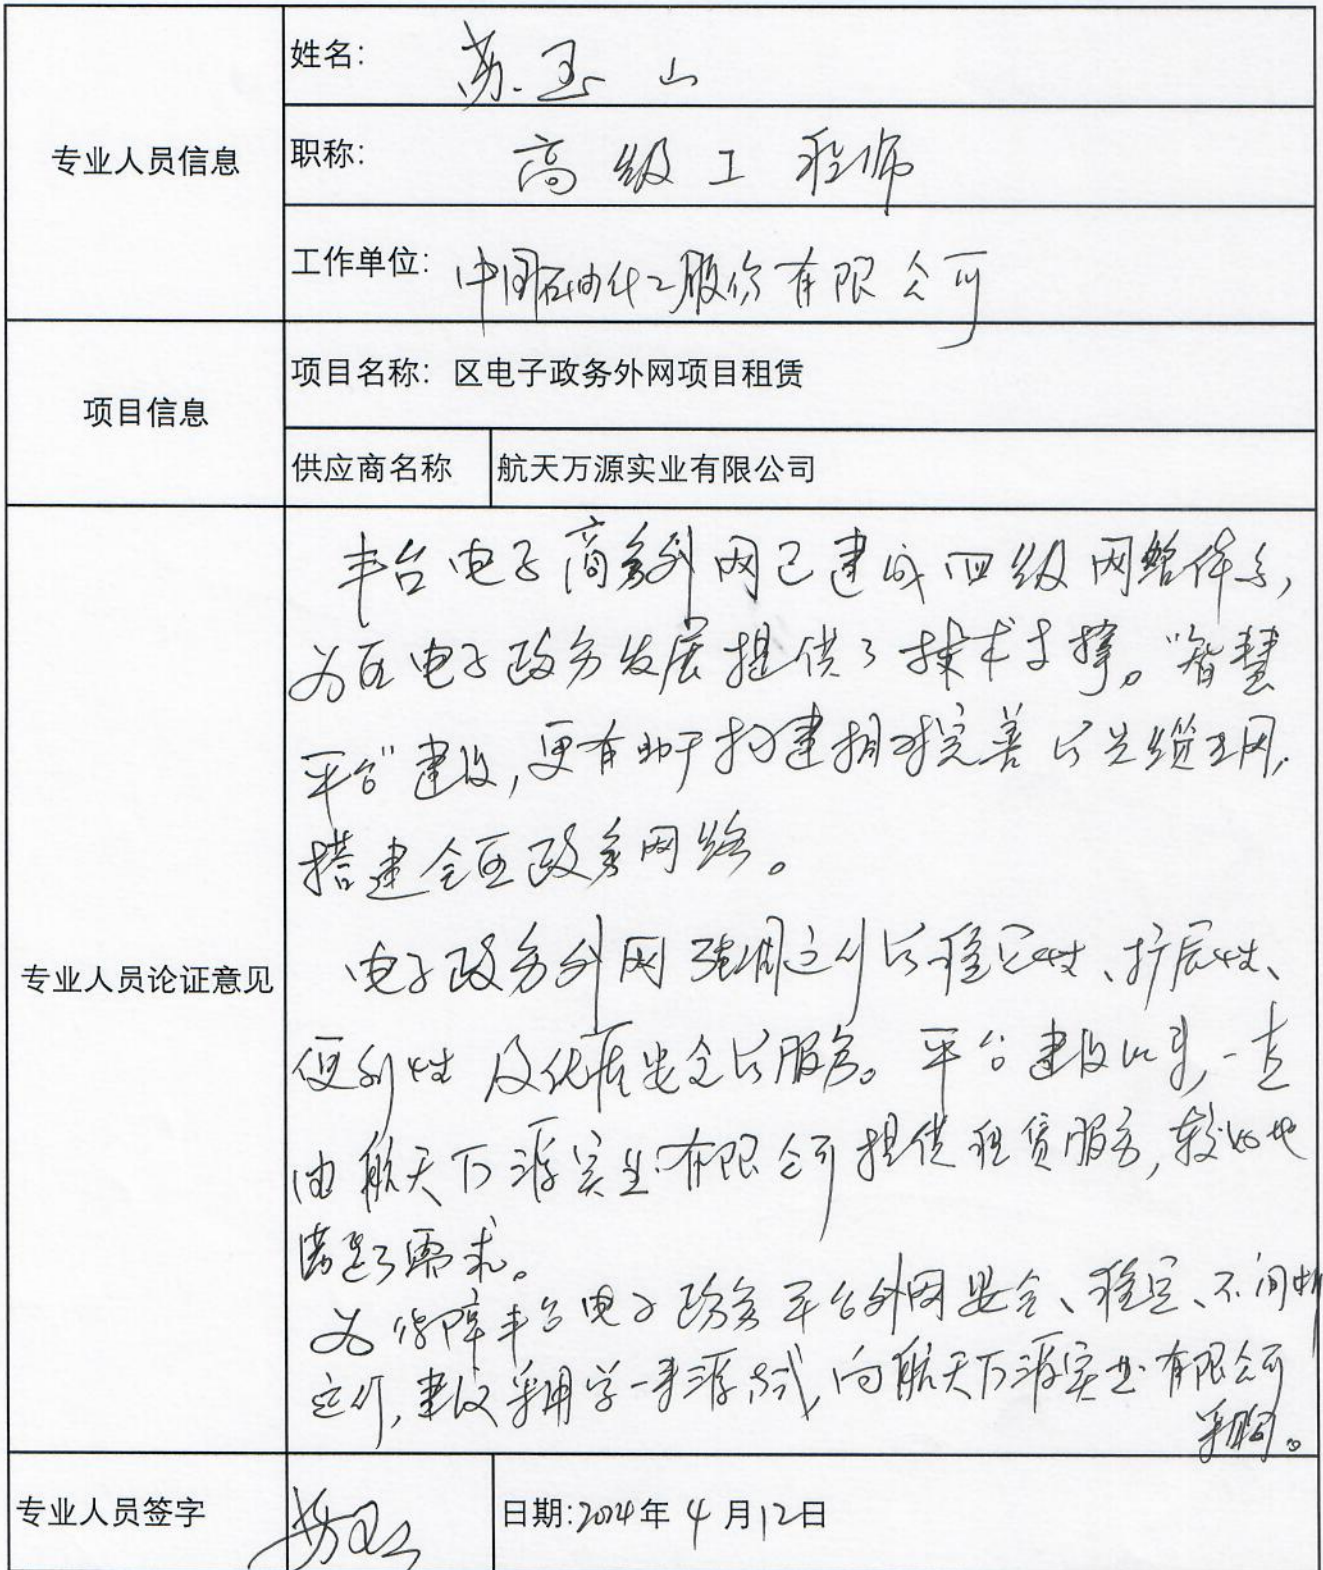 专业人员信息
姓名: 苏玉山
职称: 高级工程师
工作单位: 中国石油化工股份有限公司
项目信息
项目名称: 区电子政务外网项目租赁
供应商名称 航天万源实业有限公司
专业人员论证意见
丰台电子商务外网已建成四级网络体系,
为区电子政务发展提供了技术支撑。"智慧
平台"建设,更有助于构建相对完善的光缆主网,
搭建全区政务网络。
电子政务外网强调运行的稳定性、扩展性、
便利性及优质安全的服务。平台建设以来,一直
由航天万源实业有限公司提供租赁服务,较好地
满足了需求。
为保障丰台电子政务平台外网安全、稳定、不间断
运行,建议采用单一来源方式,向航天万源实业有限公司
采购。
专业人员签字 苏玉山
日期:2024年4月12日